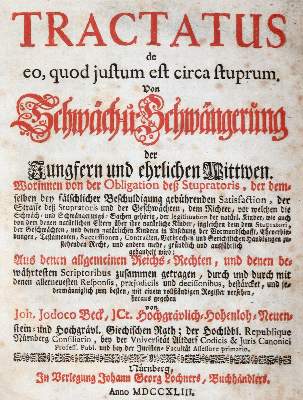 TRACTATUS
de
eo, quod justum est circa stuprum.
Von
Schwäch- u. Schwängerung
der
Jungfern und ehrlichen Wittwen.
Worinnen von der Obligation deß Stupratoris, der dem-
selben bey fälschlicher Beschuldigung gebührenden Satisfaction, der
Strafe deß Stupratoris und der Geschwächten, dem Richter, vor welchen die
Schwäch- und Schwängerungs-Sachen gehören, der legitimation der natürl. Kinder, wie auch
von dem denen natürlichen Eltern über ihre natürliche Kinder, ingleichen dem dem Stupratori,
der Geschwächten, und denen natürlichen Kindern in Ansehung der Vormundschafft,
Testamenten, Successionen, Contracten, Gerichtlichen Handlungen zu-
stehenden Recht, und anders mehr, gründlich und ausführlich
gehandelt wird;
Aus denen allgemeinen Reichs-Rechten, und denen be-
währtesten Scriptoribus zusammen getragen, durch und durch mit
denen allerneuesten Responsis, præjudiciis und decisionibus, bestärcket, und je-
dermänniglich zum besten, mit einem vollständigen Register versehen,
heraus gegeben
von
Joh. Jodoco Beck, JCt. Hochgrävlich-Hohenloh-Neuen-
stein- und Hochgrävl. Giechischen Rath; der Hochlöbl. Republique
Nürnberg Consiliario, bey der Vniversität Altdorf Codicis & Juris Canonici
Profess. Publ. und bey der Juristen-Facultät Assessore primario.
Nürnberg,
In Verlegung Johann Georg Lochners, Buchhändlers.
Anno MDCCXLIII.